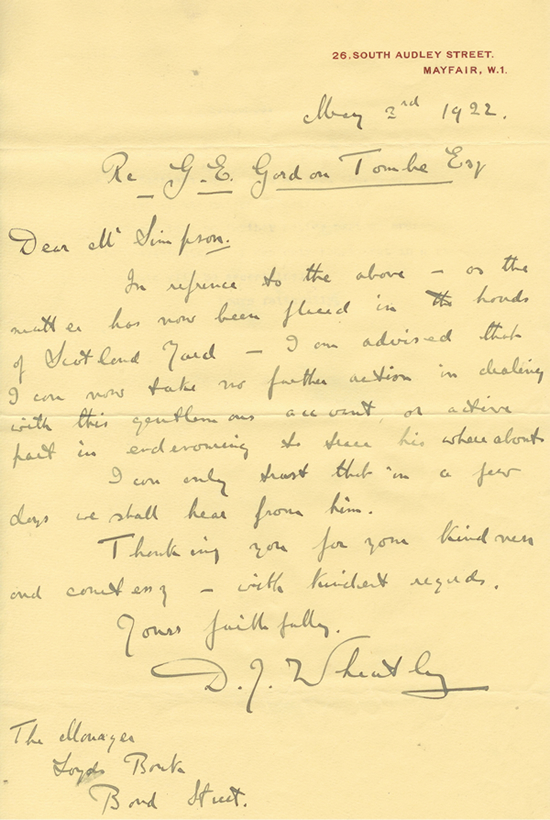 26, SOUTH AUDLEY STREET.
MAYFAIR, W.1.
May 2rd 1922.
Re G. E. Gordon Tombe Esq
Dear Mr Simpson.
In refrence to the above – as the
matter has now been placed in the hands
of Scotland Yard – I am advised that
I can now take no further action in dealing
with this gentlemans account, or active
part in endevouring to trace his whereabouts
I can only trust that in a few
days we shall hear from him.
Thanking you for your kindness
and courtesy – with kindest regards.
Yours faithfully.
D. J. Wheatley
The Manager
Loyds Bank
Bond Street.